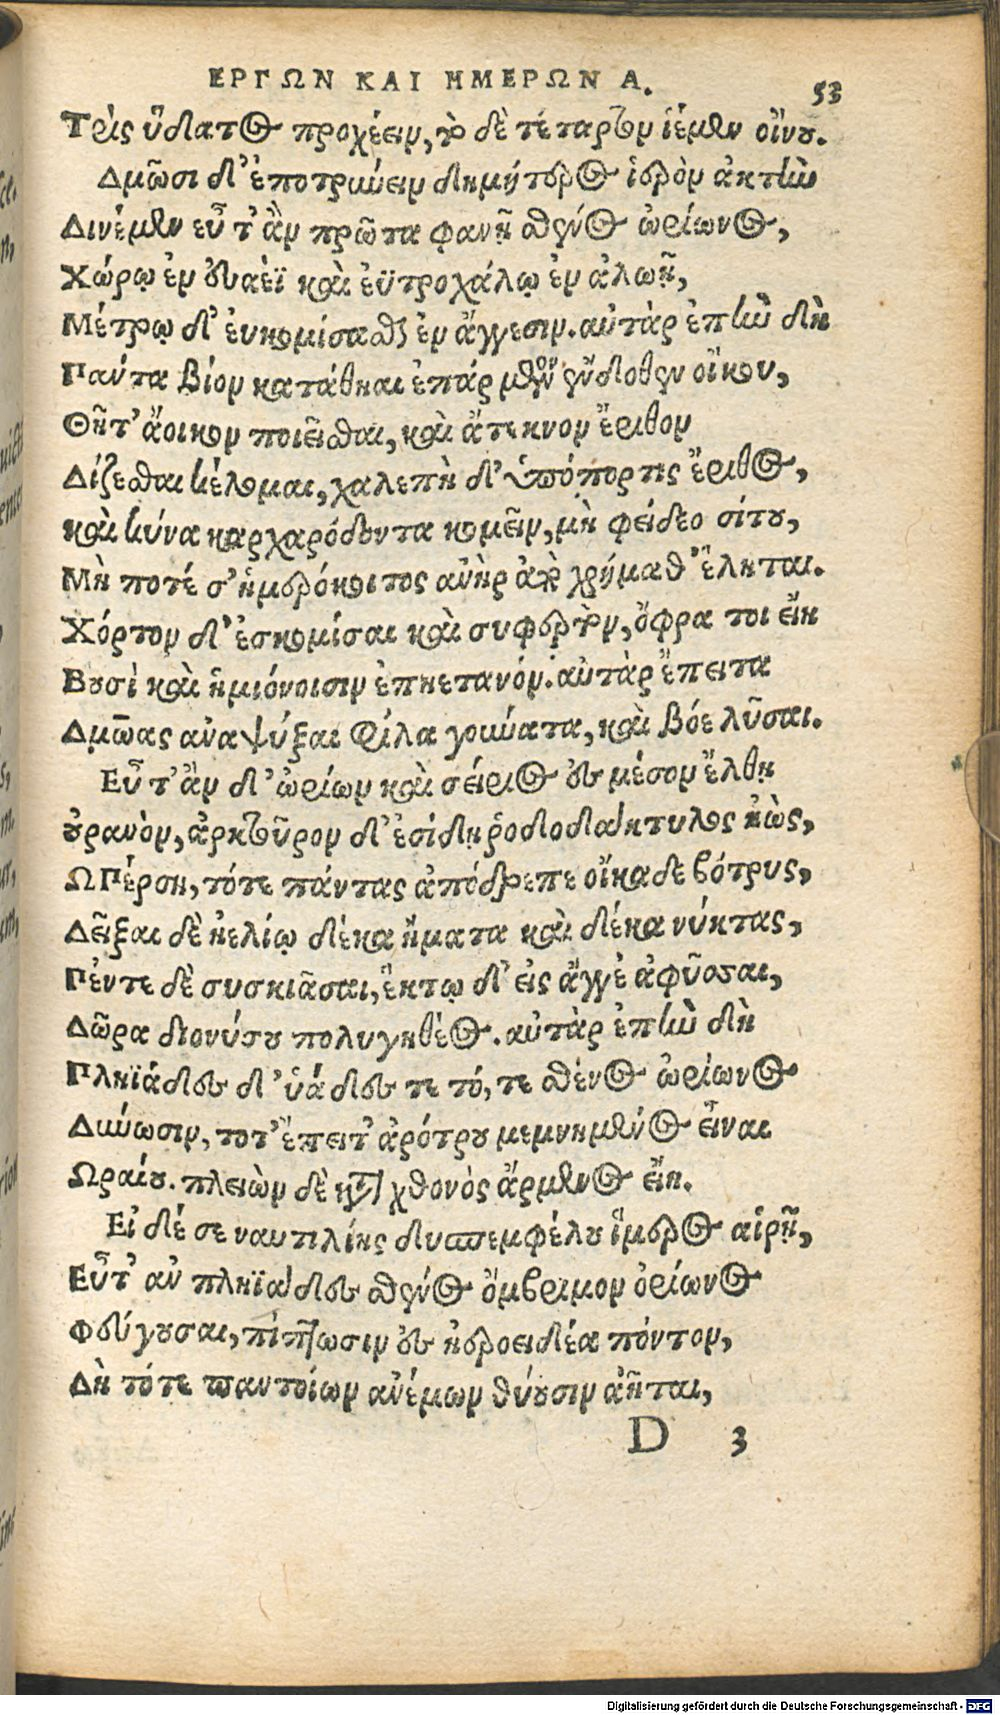 ΕΡΓΩΝ ΚΑΙ ΗΜΕΡΩΝ Α. 53
Τρὶς ὕδατος προχέειν, τὸ δὲ τέταρτον ἱέμεν οἴνου.
Δμῶσι δ' ἐποτρύνειν δημήτερος ἱερὸν ἀκτὴν
Δινέμεν εὖ τ' ἂν πρῶτα φανῇ σθένος ὠρίωνος,
Χώρῳ ἐν εὐαέϊ καὶ ἐϋτροχάλῳ ἐν ἀλωῇ,
Μέτρῳ δ' ἐυκομίσασθαι ἐν ἄγγεσιν. αὐτὰρ ἐπὴν δὴ
Πάντα βίον κατάθηαι ἐπάρμενον ἔνδοθεν οἴκου,
Θῆτ' ἄοικον ποιεῖσθαι, καὶ ἄτεκνον ἔριθον
Δίζεσθαι κέλομαι, χαλεπὴ δ' ὑπόπορτις ἔριθος,
καὶ κύνα καρχαρόδοντα κομεῖν, μὴ φείδεο σίτου,
Μὴ ποτέ σ' ἡμερόκοιτος ἀνὴρ ἀπὸ χρήμαθ' ἕληται.
Χόρτον δ' ἐσκομίσαι καὶ συφερτὸν, ὄφρα τοι εἴη
Βουσὶ καὶ ἡμιόνοισιν ἐπηετανόν. αὐτὰρ ἔπειτα
Δμῶας ἀναψύξαι φίλα γούνατα, καὶ βόε λῦσαι.
Εὖ τ' ἂν δ' ὠρίων καὶ σείριος ἐς μέσον ἔλθῃ
οὐρανὸν, ἀρκτοῦρον δ' ἐσίδῃ ῥοδοδάκτυλος ἠὼς,
Ω Πέρση, τότε πάντας ἀπόδρεπε οἴκαδε βότρυς,
Δεῖξαι δὲ ἠελίῳ δέκα ἤματα καὶ δέκα νύκτας,
Πέντε δὲ συσκιᾶσαι, ἕκτῳ δ' εἰς ἄγγε' ἀφῦσαι,
Δῶρα διονύσου πολυγηθέος. αὐτὰρ ἐπὴν δὴ
Πληϊάδες δ' ὑάδες τε τό, τε σθένος ὠρίωνος
Δύνωσιν, τοτ' ἔπειτ' ἀρότρου μεμνημένος εἶναι
Ωραίου. πλειὼν δὲ κατὰ χθονὸς ἄρμενος εἴη.
Εἰ δέ σε ναυτιλίης δυσπεμφέλου ἵμερος αἱρῇ,
Εὖτ' ἀν πληϊάδες σθένος ὄμβριμον ὀρίωνος
Φεύγουσαι, πίπτωσιν ἐς ἠεροειδέα πόντον,
Δὴ τότε παντοίων ἀνέμων θύουσιν ἀῆται,
D 3
Digitalisierung gefördert durch die Deutsche Forschungsgemeinschaft - DFG